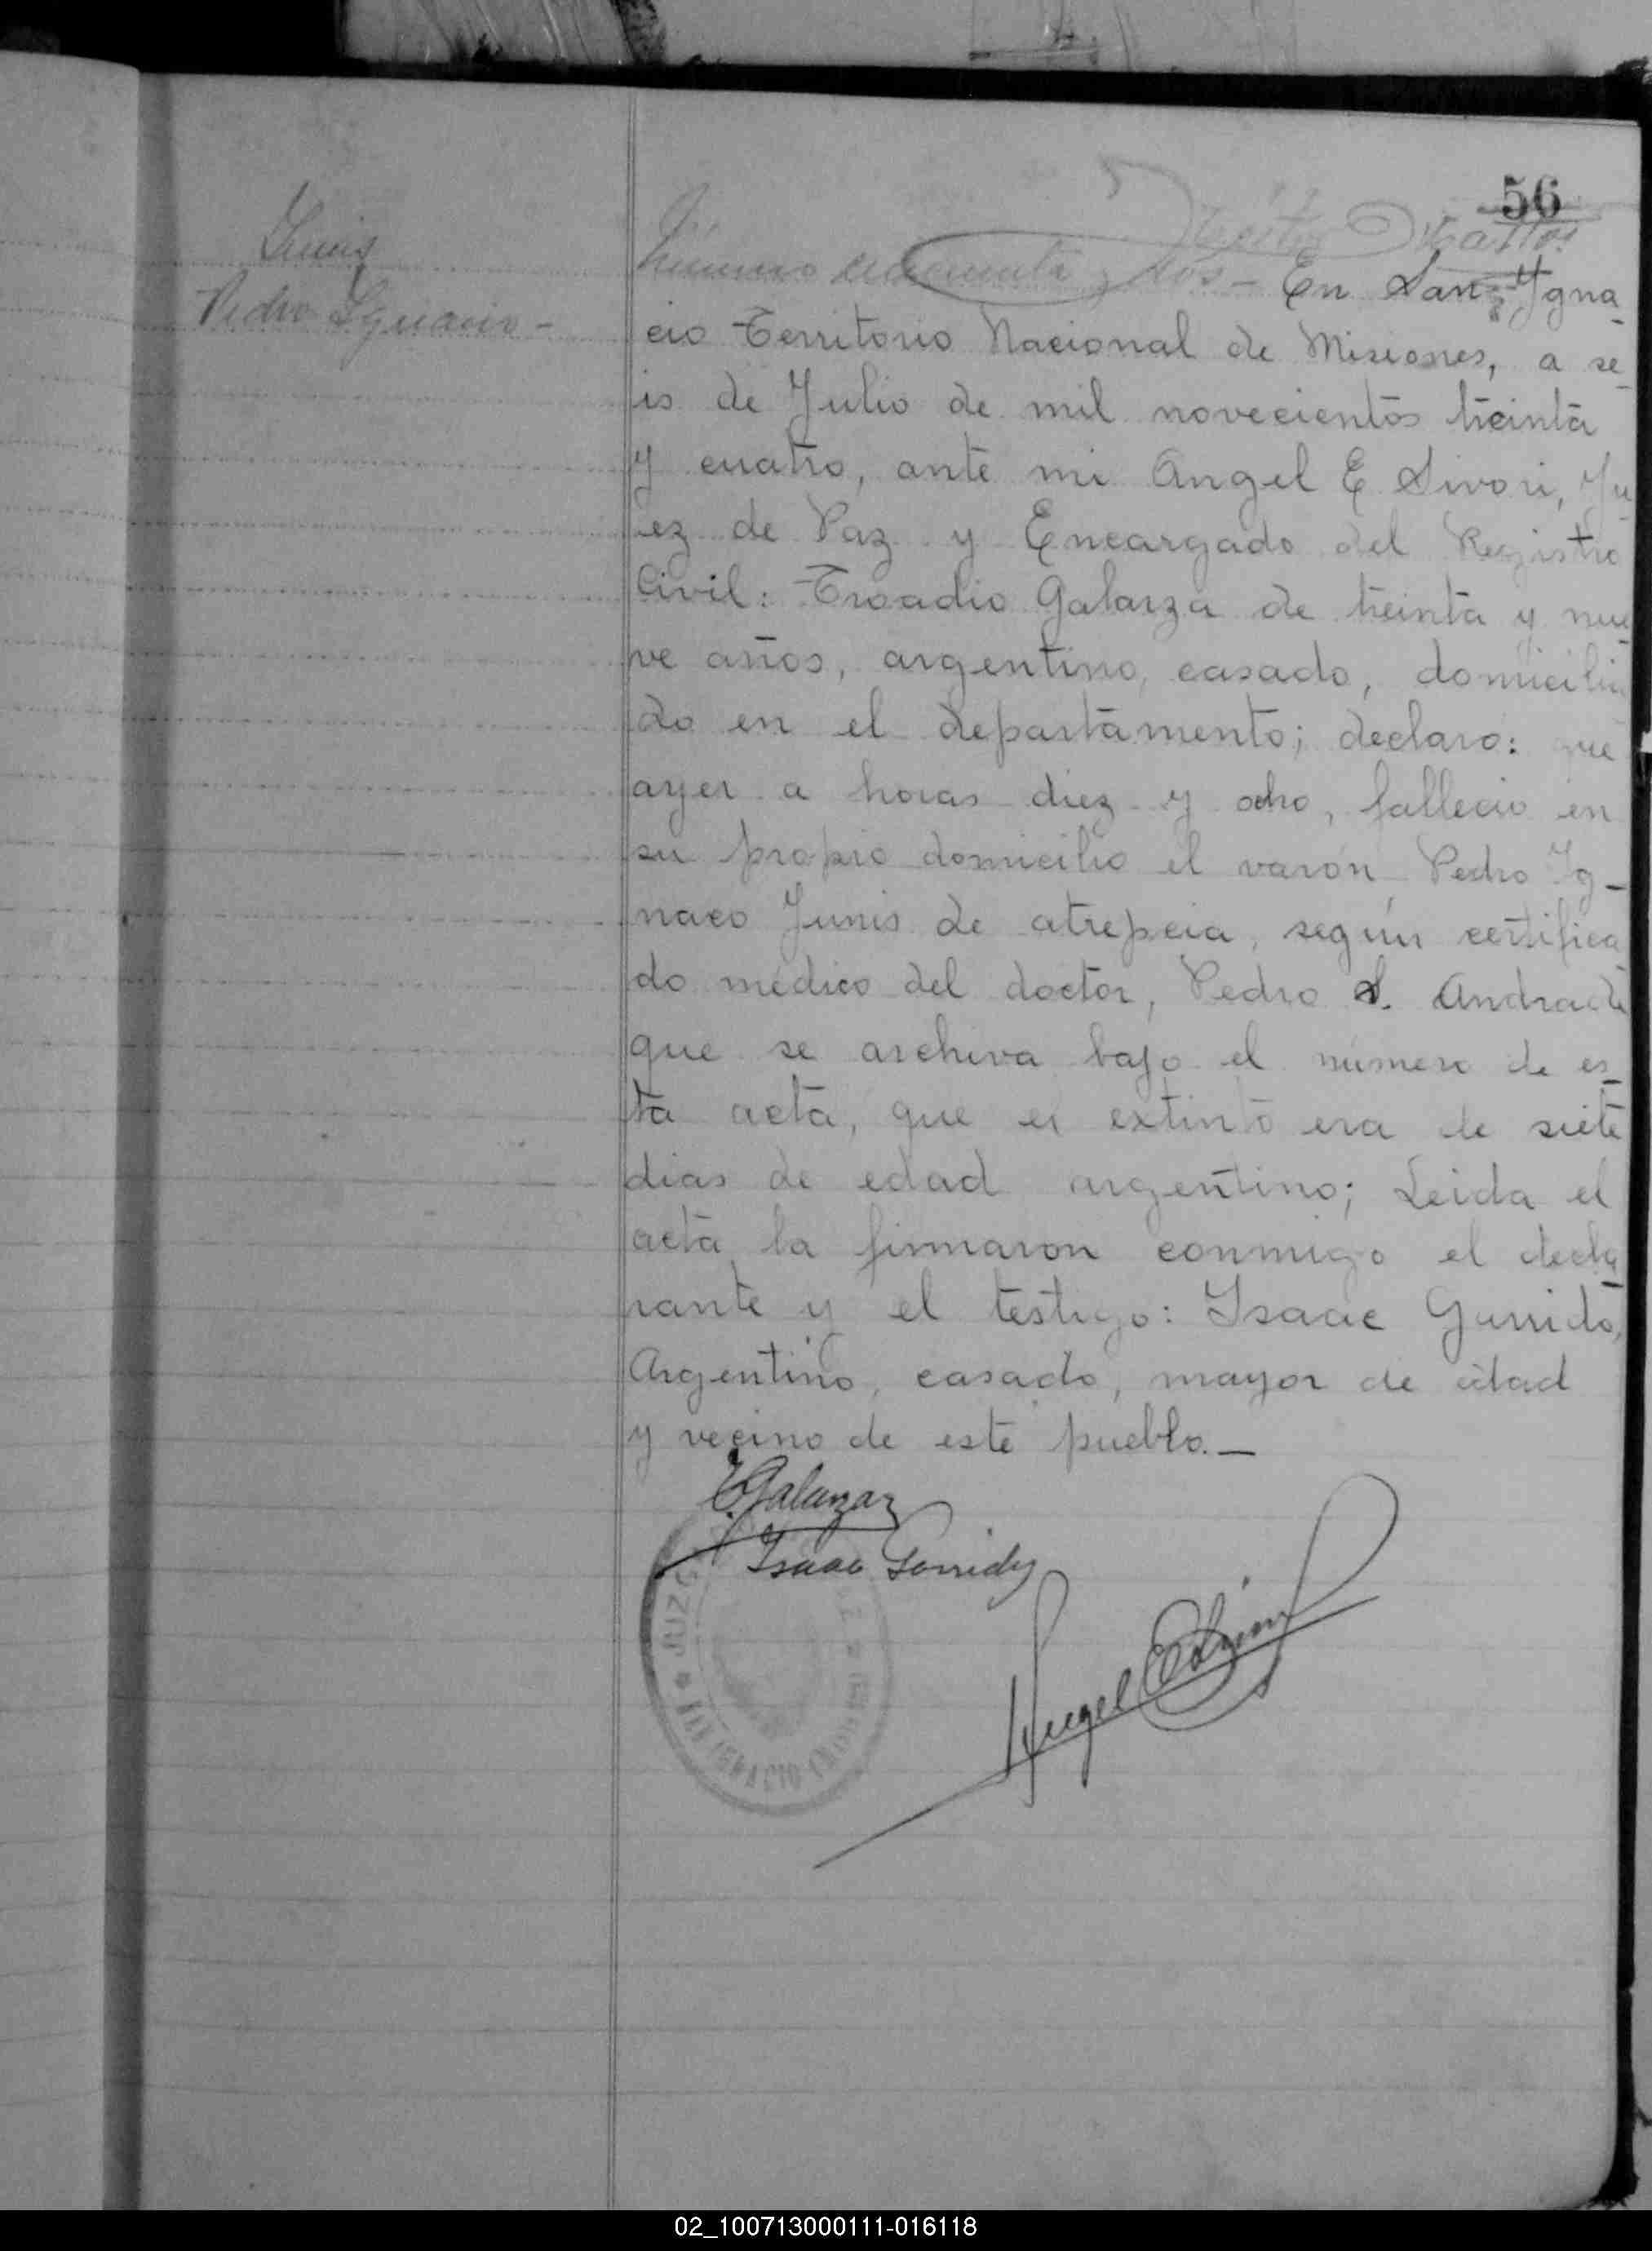 56
Junis
Pedro Ygnacio -
Número cincuenta y dos - En San Ygna
cio Territorio Nacional de Misiones, a se_
is de Julio de mil novecientos treinta
y cuatro, ante mi Angel E Sivori, Ju
ez de Paz y Encargado del Registro
Civil: Troadio Galarza de treinta y nue
ve años, argentino, casado, domicilia
do en el departamento; declaro: que
ayer a horas diez y ocho, fallecio en
su propio domicilio el varón Pedro Ig-
naco Junis de atrepcia, según certifica
do médico del doctor, Pedro S. Andrade
que se archiva bajo el número de es_
ta acta, que el extinto era de siete
dias de edad argentino; Leida el
acta la firmaron conmigo el decla
rante y el testigo: Isaac Garrido,
Argentino, casado, mayor de edad
y vecino de este pueblo.-
Isaac Garrido
Angel E Sivori
JUZG
SAN IGNACIO
02_100713000111-016118